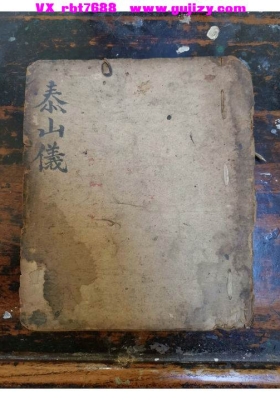 VX rbt7688 www.gujizy.com
泰山儀